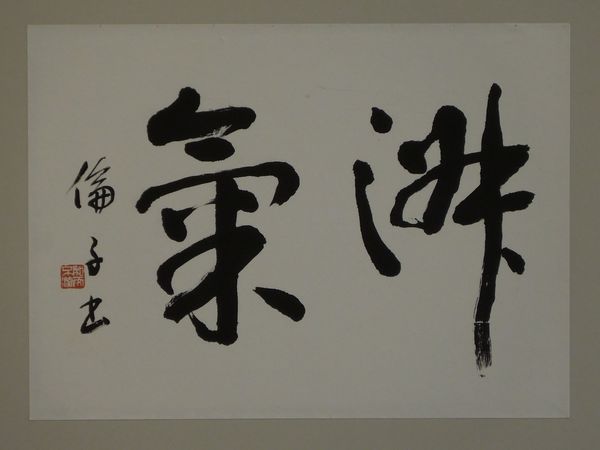 淑氣
倫子書